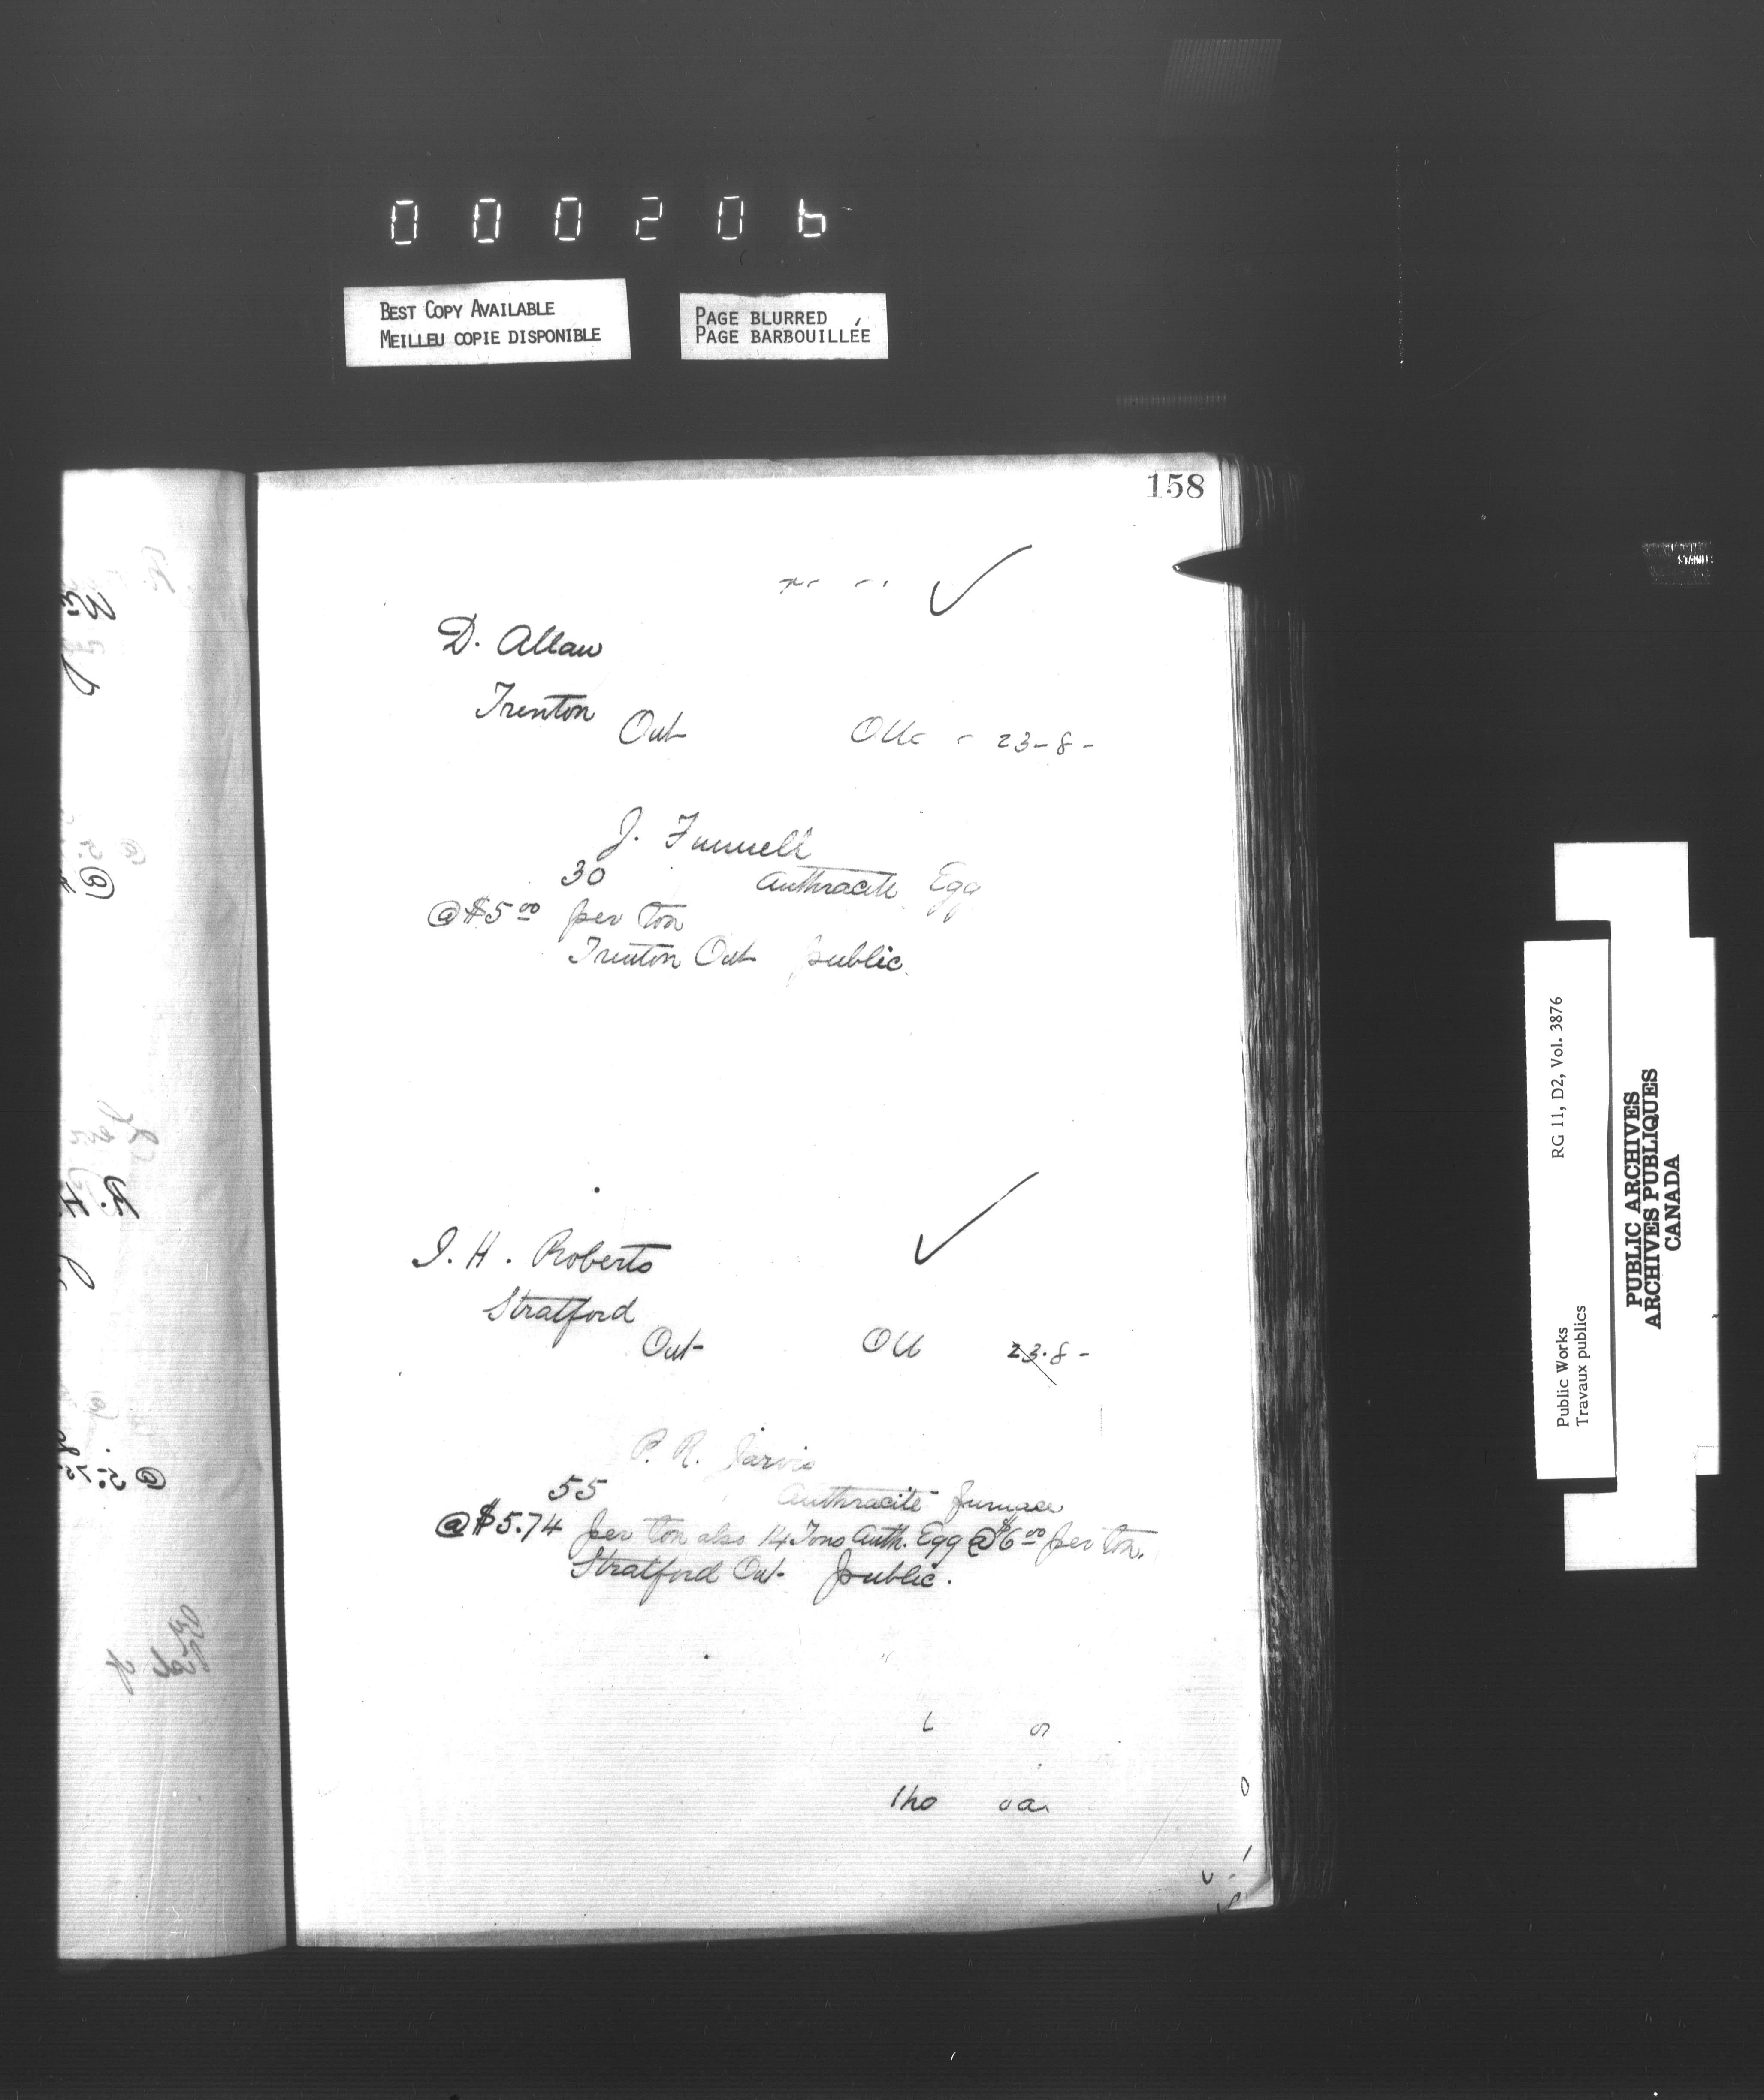 000206
BEST COPY AVAILABLE
MEILLEU COPIE DISPONIBLE
PAGE BLURRED
PAGE BARBOUILLÉE
158
D. Allan
Trenton
Ont
23-8-
J. Funnell
30 Anthracite Egg
@ $5.00 per ton
Trenton Ont public
I. H. Roberts
Stratford
Ont
23.8-
P. R. Jarvis
55 Anthracite furnace
@ $5.74 per ton also 14 Tons Auth. Egg @ $6.00 per ton.
Stratford Ont public.
Public Works
Travaux publics
RG 11, D2, Vol. 3876
PUBLIC ARCHIVES
ARCHIVES PUBLIQUES
CANADA